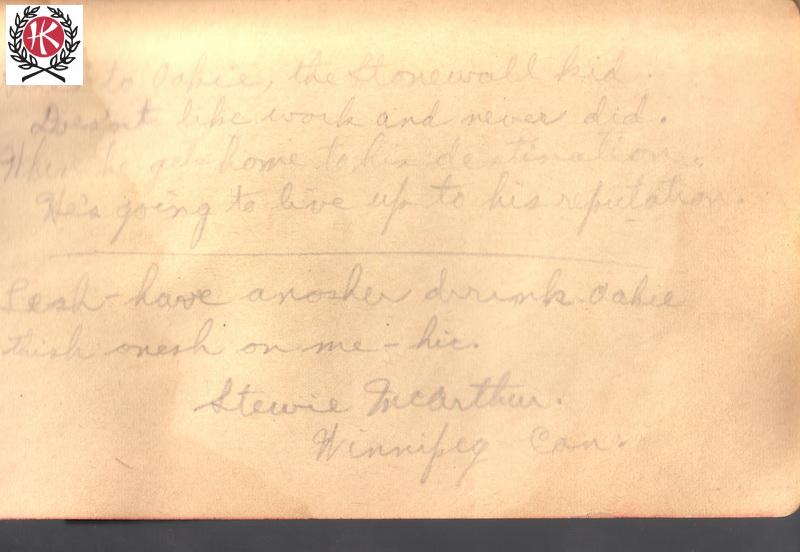 HK
to Oakie, the Stonewall kid.
Doesn't like work and never did.
When he gets home to his destination.
He's going to live up to his reputation.
Lesh-have anosher drrink Oakie
thish onesh on me - hic.
Stewie McArthur.
Winnipeg Can.